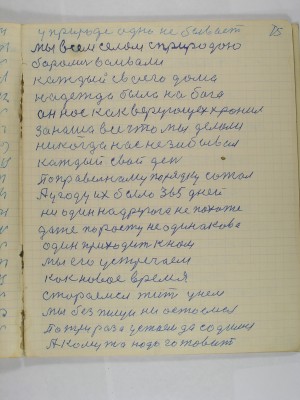 у природе одно не бывает 25
мы всем селом с природою
боролис воивали
каждый своего дома
надежда была на бога
он нас как верующех хронил
за наша все что мы делали
никогда нас не забывал
каждый свой ден
поправелному порядку сажол
А у году их было 365 дней
ни один на другога не похоже
даже по росту не одинакова
один приходит к нам
мы его устречаем
как новое время
стораемся жит у нем
мы без пищи ни остаемся
по три раза уженаем да содимся
А кому то надо готовит